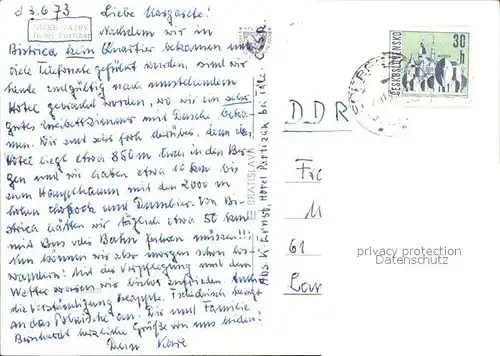 d 3.6.73 Liebe Margarete!
NÍZKE TATRY
Hotel Partizán
Nachdem wir in
Bistrica kein Quartier bekamen und
viele Telefonate geführt wurden, sind wir
heute endgültig nach umstehendem
Hotel gebracht worden, wo wir ein sehr
gutes Zweibettzimmer mit Dusche beka-
men. Wir sind sehr froh darüber, denn das
Hotel liegt etwa 850 m hoch in den Ber-
gen und wir haben etwa 10 km bis
zum Hauptkamm mit den 2000 m
hohen Chopok und Dumbier. Von Bi-
strica hätten wir täglich etwa 50 km
mit Bus oder Bahn fahren müssen!!!
Nun können wir also morgen schon los-
wandern! Mit der Verpflegung und dem
Wetter waren wir bisher zufrieden. Auch
die Verständigung klappte. Tschechisch
an das Polnische an. Dir und Familie
Bernhardt herzliche Grüße von uns beiden!
Dein Karl
BRATISLAVA
Abs. K. Ernst, Hotel Partizán bei Tále ČSSR.
ČESKOSLOVENSKO
30 h
DDR
Fr
61
privacy protection
Dakomat.com